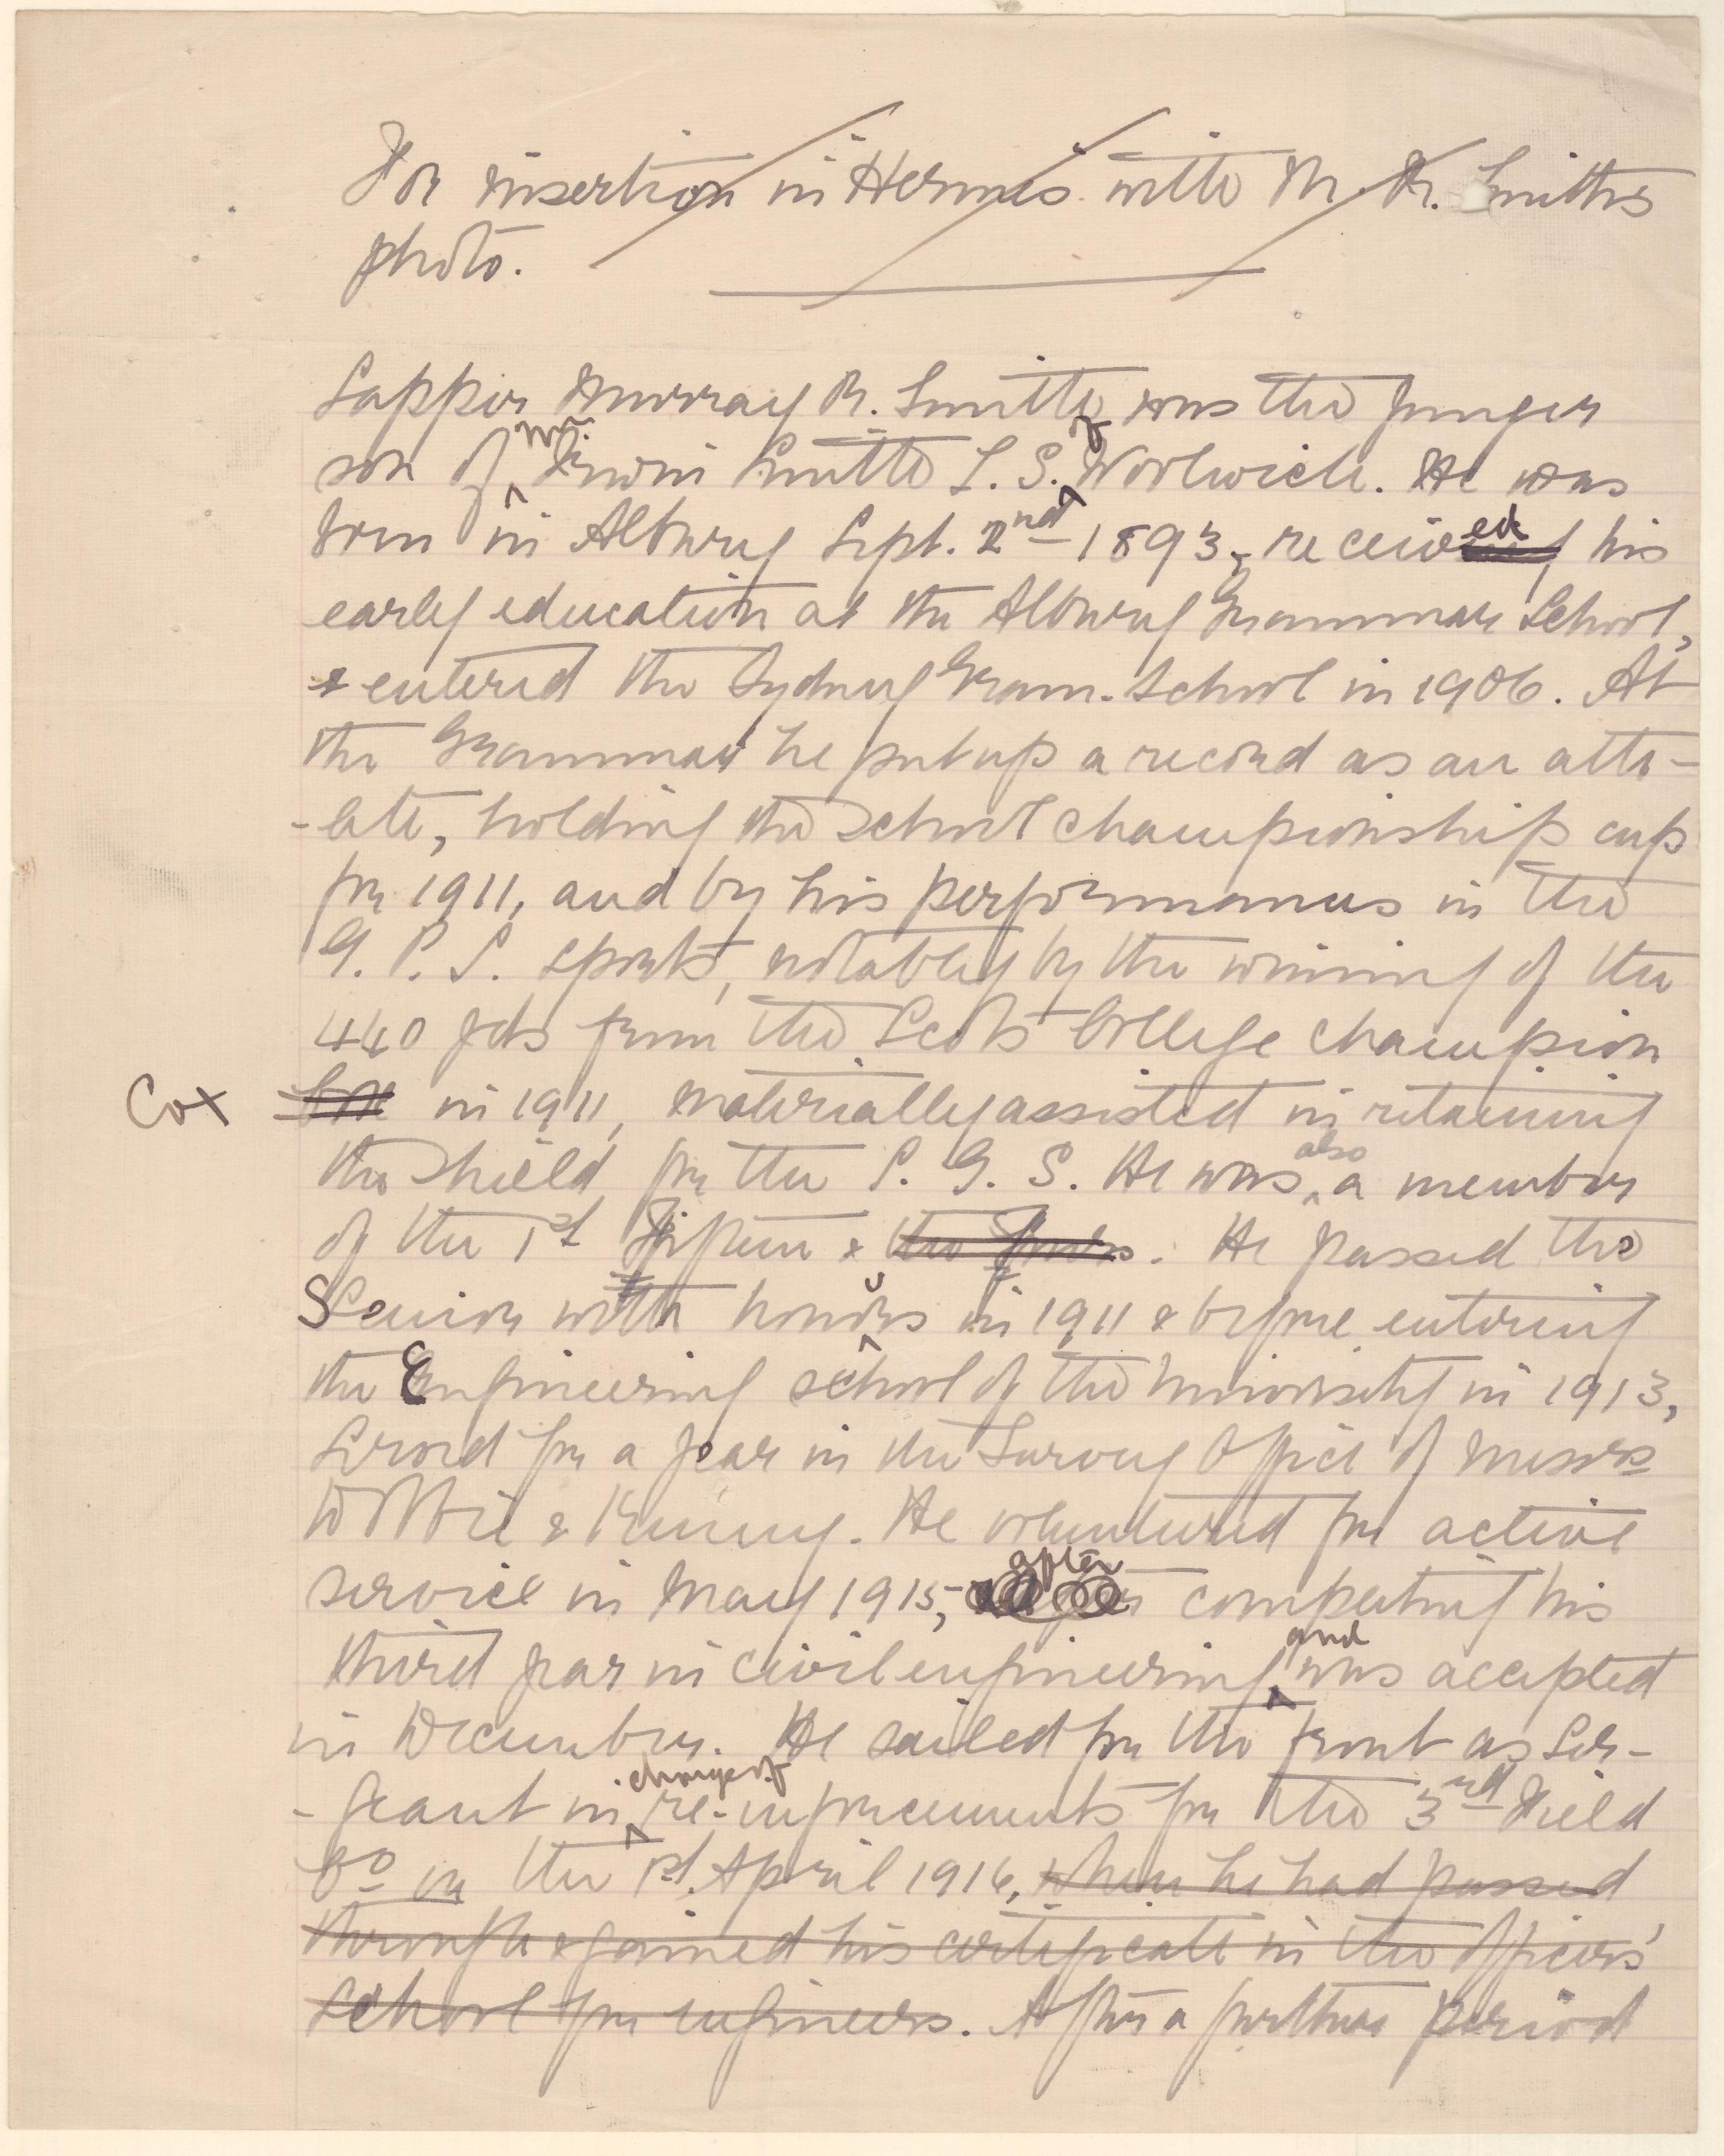 For insertion in Hermes with M. R. Smith's
photo.
Sapper Murray R. Smith was the younger
son of Mr. Irwin Smith L. S. of Woolwich. He was
born in Albury Sept. 2nd 1893, received his
early education at the Albury Grammar School,
& entered the Sydney Gram. School in 1906. At
the Grammar he put up a record as an ath-
-lete, holding the School championship cup
for 1911, and by his performances in the
G. P. S. sports, notably by the winning of the
440 yds from the Scots College champion
Cox Cox in 1911, materially assisted in retaining
the Shield for the S. G. S. He was also a member
of the 1st Fifteen & the fours. He passed the
Senior with honours in 1911 & before entering
the Engineering school of the University in 1913,
served for a year in the Survey Office of Messrs
Dobbie & Kenny. He volunteered for active
service in May 1915, after competing his
third year in civil engineering, and was accepted
in December. He sailed for the front as Ser-
-geant in charge of re-inforcements for the 3rd Field
Co on the 1st April 1916, when he had passed
through & gained his certificate in the Officers'
school for engineers. After a further period